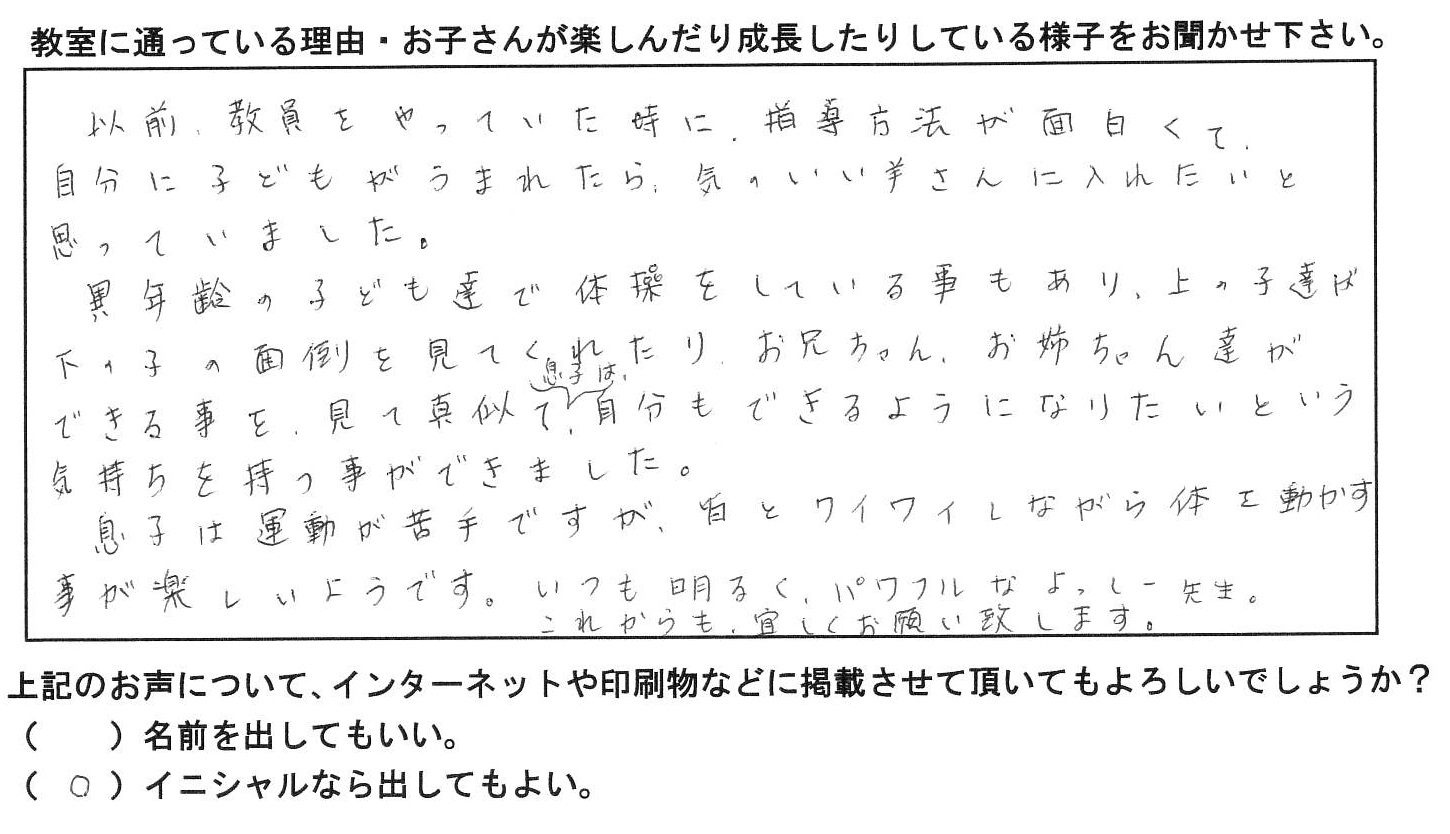 教室に通っている理由・お子さんが楽しんだり成長したりしている様子をお聞かせ下さい。
以前、教員をやっていた時に、指導方法が面白くて、
自分に子どもがうまれたら、気のいい羊さんに入れたいと
思っていました。
異年齢の子ども達で体操をしている事もあり、上の子達は
下の子の面倒を見てくれたり、お兄ちゃん、お姉ちゃん達が
息子は、
できる事を、見て真似て、自分もできるようになりたいという
気持ちを持つ事ができました。
息子は運動が苦手ですが、皆とワイワイしながら体を動かす
事が楽しいようです。いつも明るく、パワフルなよっしー先生。
これからも、宜しくお願い致します。
上記のお声について、インターネットや印刷物などに掲載させて頂いてもよろしいでしょうか？
（　　）名前を出してもいい。
（ ○ ）イニシャルなら出してもよい。